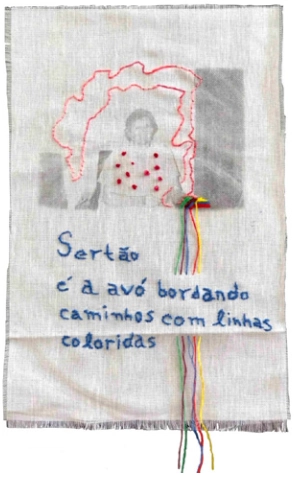 Sertão
é a avó bordando
caminhos com linhas
coloridas